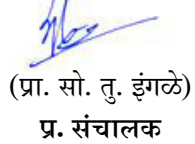 (प्रा. सो. तु. इंगळे)
प्र. संचालक